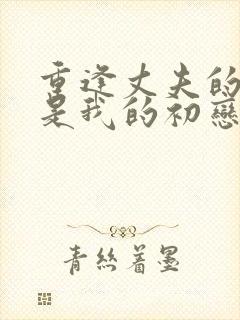 重逢丈夫的
是我的初戀
青絲着墨